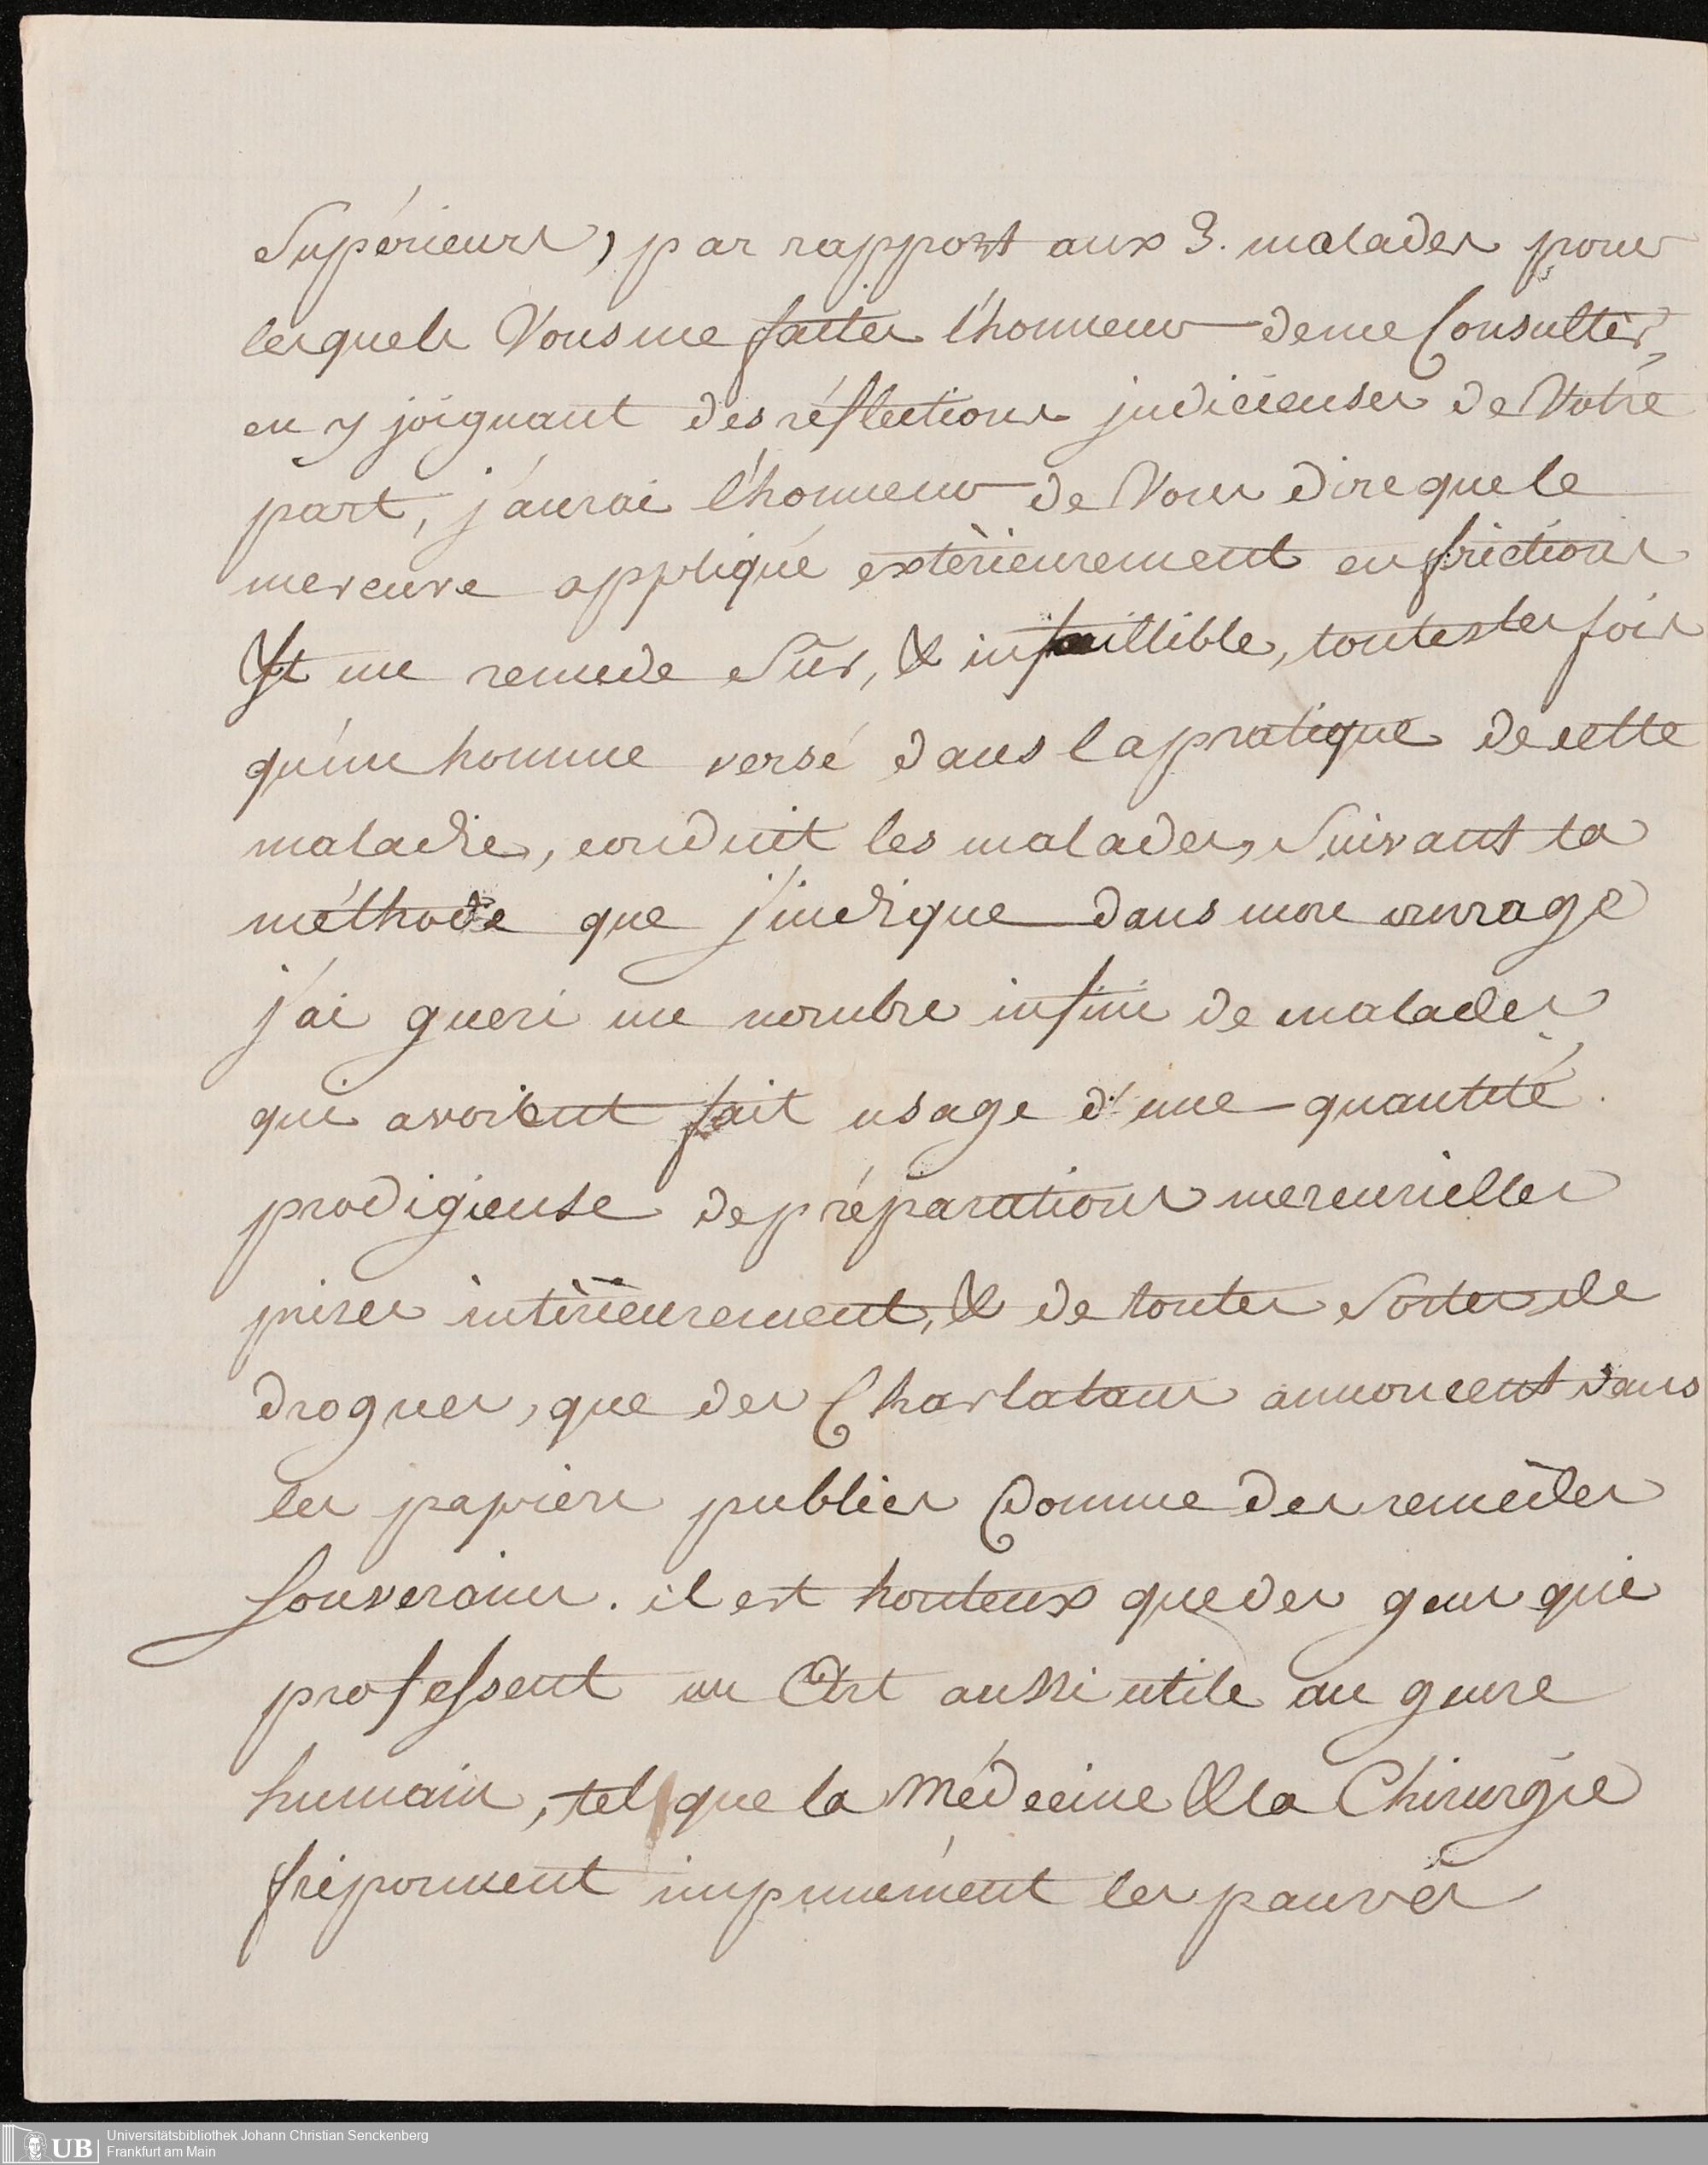 Supérieurs, par rapport aux 3. malades pour
lesquels Vous me faites l'honneur de me Consulter,
en y joignant des réflections judicieuses de Votre
part, j'aurai l'honneur de Vous dire que le
mercure appliqué extèrieurement en frictions
Est un remede Sûr, & infaillible, toutes les fois
qu'un homme versé dans la pratique de cette
maladie, conduit les malades, Suivant la
méthode que j'indique dans mon ouvrage
j'ai gueri un nombre infini de malades
qui avoient fait usage d'une quantité
prodigieuse de préparations mercurielles
prises intèrieurement, & de toutes Sortes de
drogues, que des Charlatans annoncent dans
les papiers publics Comme des remèdes
Souverains. il est honteux que des gens qui
professent un Art aussi utile au genre
humain, tel que la Médecine & la Chirurgie
friponnent impunément les pauvres
Universitätsbibliothek Johann Christian Senckenberg
Frankfurt am Main
UB